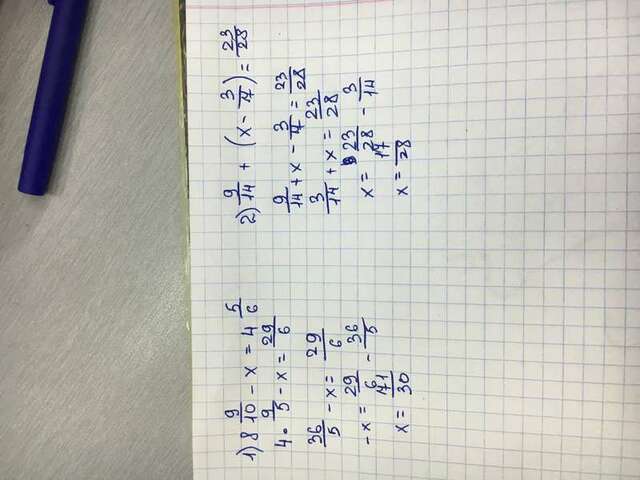 1) 8 9/10 - x = 4 5/6
4 · 9/5 - x = 29/6
36/5 - x = 29/6
-x = 29/6 - 36/5
x = 71/30
2) 9/14 + (x - 3/7) = 23/28
9/14 + x - 3/7 = 23/28
3/14 + x = 23/28
x = 23/28 - 3/14
x = 17/28